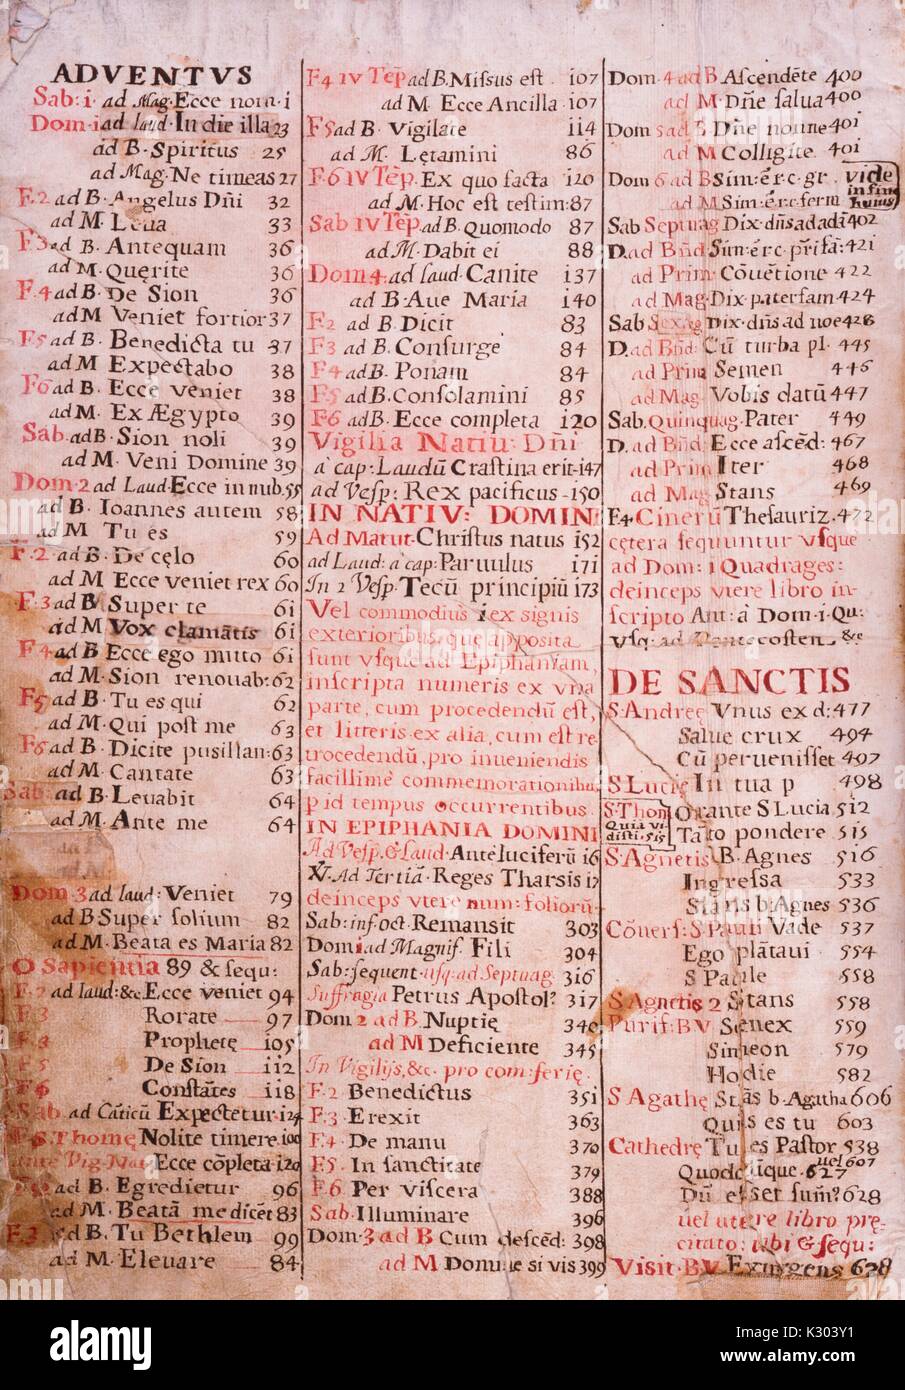 ADVENTVS
Sab: i ad Mag. Ecce nom. i
Dom. i ad laud. In die illa 23
ad B. Spiritus 25
ad Mag. Ne timeas 27
F. 2 ad B. Angelus Dn̄i 32
ad M. Leua 33
F. 3 ad B. Antequam 36
ad M. Quęrite 36
F. 4 ad B. De Sion 36
ad M Veniet fortior 37
F5 ad B. Benedicta tu 37
ad M Expectabo 38
F6 ad B. Ecce veniet 38
ad M. Ex Ægypto 39
Sab. ad B. Sion noli 39
ad M. Veni Domine 39
Dom. 2 ad Laud. Ecce in nub. 55
ad B. Ioannes autem 58
ad M Tu es 59
F. 2. ad B. De cęlo 60
ad M Ecce veniet rex 60
F. 3 ad B Super te 61
ad M Vox clamātis 61
F4 ad B Ecce ego mitto 61
ad M. Sion renouab: 62
F5 ad B. Tu es qui 62
ad M. Qui post me 63
F6 ad B. Dicite pusillan: 63
ad M. Cantate 63
Sab: ad B. Leuabit 64
ad M. Ante me 64
Dom. 3 ad laud: Veniet 79
ad B Super solium 82
ad M. Beata es Maria 82
O Sapientia 89 & sequ:
F. 2 ad laud: &c Ecce veniet 94
F. 3 Rorate 97
Prophetę 105
F5 De Sion 112
F6 Constātes 118
Sab. ad Cāticū Expectetur. 124
F. S. Thomę Nolite timere. 100
ante Vig. Nat. Ecce cōpleta. 120
ad B. Egredietur 96
ad M. Beatā me dicēt 83
F. 2 ad B. Tu Bethlem 99
ad M. Eleuare 84
F4 IV Tēp ad B. Missus est. 107
ad M. Ecce Ancilla 107
F5 ad B. Vigilate 114
ad M. Lętamini 86
F. 6 IV Tēp. Ex quo facta 120
ad M. Hoc est testim: 87
Sab IV Tēp ad B. Quomodo 87
ad M. Dabit ei 88
Dom 4. ad laud. Canite 137
ad B. Aue Maria 140
F2 ad B. Dicit 83
F3 ad B. Consurge 84
F4 ad B. Ponam 84
F5 ad B. Consolamini 85
F6 ad B. Ecce completa 120
Vigilia Natiu: Dn̄i
a' cap: Laudū Crastina erit 147
ad Vesp: Rex pacificus 150
IN NATIV: DOMINI
Ad Matut. Christus natus 152
ad Laud: a' cap: Paruulus 171
In 2 Vesp. Tecū principiū 173
Vel commodius ex signis
exterioribus que apposita
sunt vsque ad Epiphaniam,
inscripta numeris ex vna
parte, cum procedendū est,
et litteris ex alia, cum est re-
trocedendū, pro inueniendis
facillime commemorationibu,
p id tempus occurrentibus.
IN EPIPHANIA DOMINI
Ad Vesp. & Laud. Ante luciferū 16
Ad Tertiā. Reges Tharsis 17
deinceps vtere num: foliorū.
Sab: inf. oct. Remansit 303
Dom i ad Magnif. Fili 304
Sab: sequent. usq. ad Septuag 316
Suffragia Petrus Apostol? 317
Dom 2 ad B. Nuptię 340
ad M Deficiente 345
In Vigilijs, &c. pro com: ferię.
F. 2 Benedictus 351
F. 3 Erexit 363
F. 4 De manu 370
F5 In sanctitate 379
F. 6 Per viscera 388
Sab. Illuminare 396
Dom. 3 ad B Cum descēd: 398
ad M Domine si vis 399
Dom. 4 ad B Ascendēte 400
ad M. Dn̄e salua 400
Dom 5 ad B Dn̄e nonne 401
ad M Colligite 401
Dom 6 ad B Sim: ērc. gr. vide
ad M Sim: ērc ferm in fine huius
Sab Septuag Dix. dn̄s ad adā 402
D. ad Bn̄d Sim: ērc pr̄i fā: 421
ad Prim Cōuētione 422
ad Mag. Dix. paterfam 424
Sab Sexag Dix. dn̄s ad noe 428
D. ad Bn̄d: Cū turba pl. 445
ad Prim Semen 446
ad Mag. Vobis datū 447
Sab. Quinquag. Pater 449
D. ad Bn̄d: Ecce ascēd: 467
ad Prim Iter 468
ad Mag Stans 469
F. 4. Cinerū Thesauriz. 472
cętera sequuntur vsque
ad Dom: i Quadrages:
deinceps vtere libro in-
scripto Ant: a' Dom. i. Qu:
vsq: ad Pentecosten &c
DE SANCTIS
S. Andreę Vnus ex d: 477
Salue crux 494
Cū peruenisset 497
S. Lucię In tua p 498
S. Thom Orante S Lucia 512
Quia vidisti. 515 Tāto pondere 515
S. Agnetis B. Agnes 516
Ingressa 533
Stans b. Agnes 536
Cōuers: S. Pauli Vade 537
Ego plātaui 554
S Paule 558
S. Agnetis 2 Stans 558
Purif: B V Senex 559
Simeon 579
Hodie 582
S Agathę Stās b. Agatha 606
Quis es tu 603
Cathedrę Tu es Pastor 538
Quodcūque. 627 uel 607
Dū esset sum? 628
uel utere libro prę-
citato: ubi & sequ:
Visit. B V Exurgens 628
alamy
Image ID: K303Y1
www.alamy.com